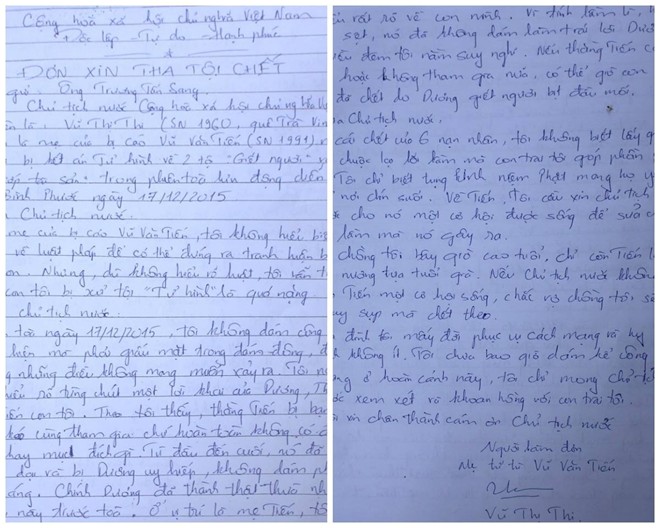 Cộng hòa xã hội chủ nghĩa Việt Nam
Độc lập - Tự do - Hạnh phúc
ĐƠN XIN THA TỘI CHẾT
gửi: Ông Trương Tấn Sang.
Chủ tịch nước Cộng hòa xã hội chủ nghĩa
là: Vũ Thị Thi (SN 1960, quê Trà Vinh
là mẹ của bị cáo Vũ Văn Tiến (SN 1991)
bị kết án Tử hình về 2 tội "Giết người"
tài sản" trong phiên tòa lưu động diễn
Bình Phước ngày 17/12/2015
Chủ tịch nước.
mẹ của bị cáo Vũ Văn Tiến, tôi không hiểu
về luật pháp để có thể đứng ra tranh luận
Nhưng, dù không hiểu rõ luật, tôi vẫn
con tôi bị xử tội "Tử hình" là quá nặng
chủ tịch nước.
tòa ngày 17/12/2015, tôi không dám công
hiện mà phải giấu mặt trong đám đông,
những điều không mong muốn xảy ra. Tôi
rõ từng chút một lời khai của Dương,
con tôi. Theo tôi thấy, thằng Tiến bị
cũng tham gia chứ hoàn toàn không có
hay mục đích gì. Từ đầu đến cuối, nó đã
và bị Dương uy hiếp, không dám
Chính Dương đã thành thật thừa
này trước tòa. Ở vị trí là mẹ Tiến, tôi
rất rõ về con mình. Vì tính lầm lì,
sệt, nó đã không dám làm trái lời Dương
đêm tôi nằm suy nghĩ. Nếu thằng Tiến
hoặc không tham gia nữa, có thể giờ con
đã chết do Dương giết người bịt đầu mối.
Chủ tịch nước.
cái chết của 6 nạn nhân, tôi không biết lấy
chuộc lại lỗi lầm mà con trai tôi góp phần
Tôi chỉ biết tụng kinh niệm Phật mong họ
nơi chín suối. Về Tiến, tôi cầu xin chủ tịch
cho nó một cơ hội được sống để sửa
lầm mà nó gây ra.
chồng tôi bây giờ cao tuổi, chỉ còn Tiến
nương tựa tuổi già. Nếu Chủ tịch nước không
Tiến một cơ hội sống, chắc vợ chồng tôi sẽ
sụp mà chết theo.
đình tôi mấy đời phục vụ cách mạng và hy
không ít. Tôi chưa bao giờ dám kể công
ở hoàn cảnh này, tôi chỉ mong Chủ tịch
xem xét và khoan hồng với con trai tôi.
xin chân thành cảm ơn Chủ tịch nước
Người làm đơn
Mẹ tử tù Vũ Văn Tiến
Vũ Thị Thi